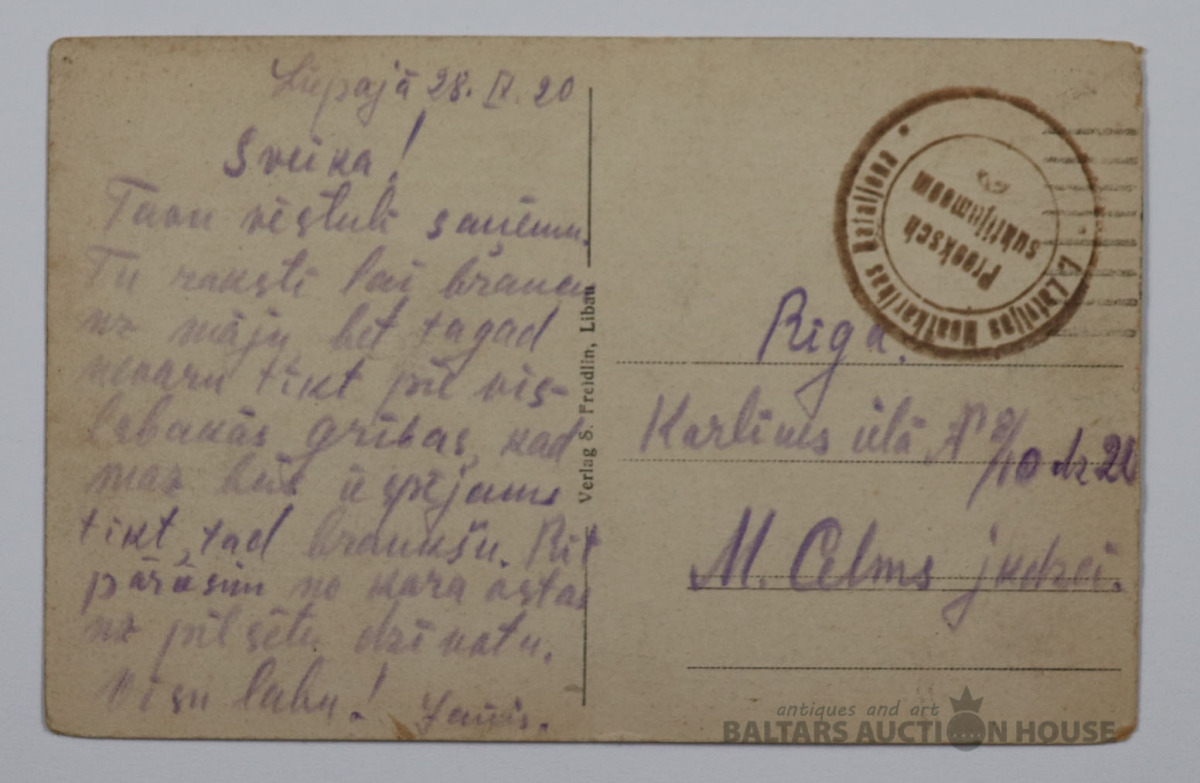 Liepajā 28. IV. 20
Sveika!
Tavu vēstuli saņēmu.
Tu raksti lai braucu
uz māju bet tagad
nevaru tikt pie vis-
labakās gribas, kad
man būs iespējams
tikt, tad braukšu. Rīt
pāriesim no kara ostas
uz pilsētu dzīvotu.
Visu labu! Janis.
Verlag S. Freidlin, Libau
Latvijas Neatkaribas Bataljona
Preeksch
suhtijumeem
Riga.
Karlines ielā № 8/10 dz 22
M. Celms jkdzei.
antiques and art
BALTARS AUCTION HOUSE